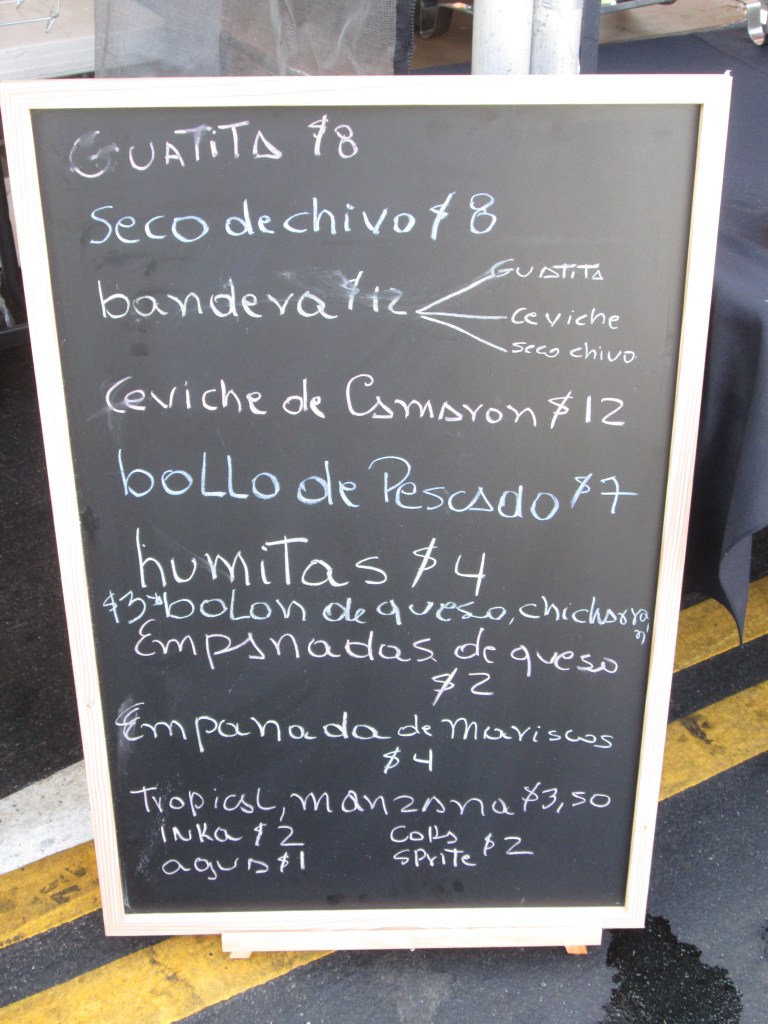 GUATITA $8
Seco de chivo $8
bandera $12
GUATITA
Ceviche
Seco chivo
Ceviche de Camaron $12
bollo de Pescado $7
humitas $4
$3 bolon de queso, chicharron
Empanadas de queso
$2
Empanada de Mariscos
$4
Tropical, manzana $3,50
INKA $2
Cola
Sprite $2
agua $1